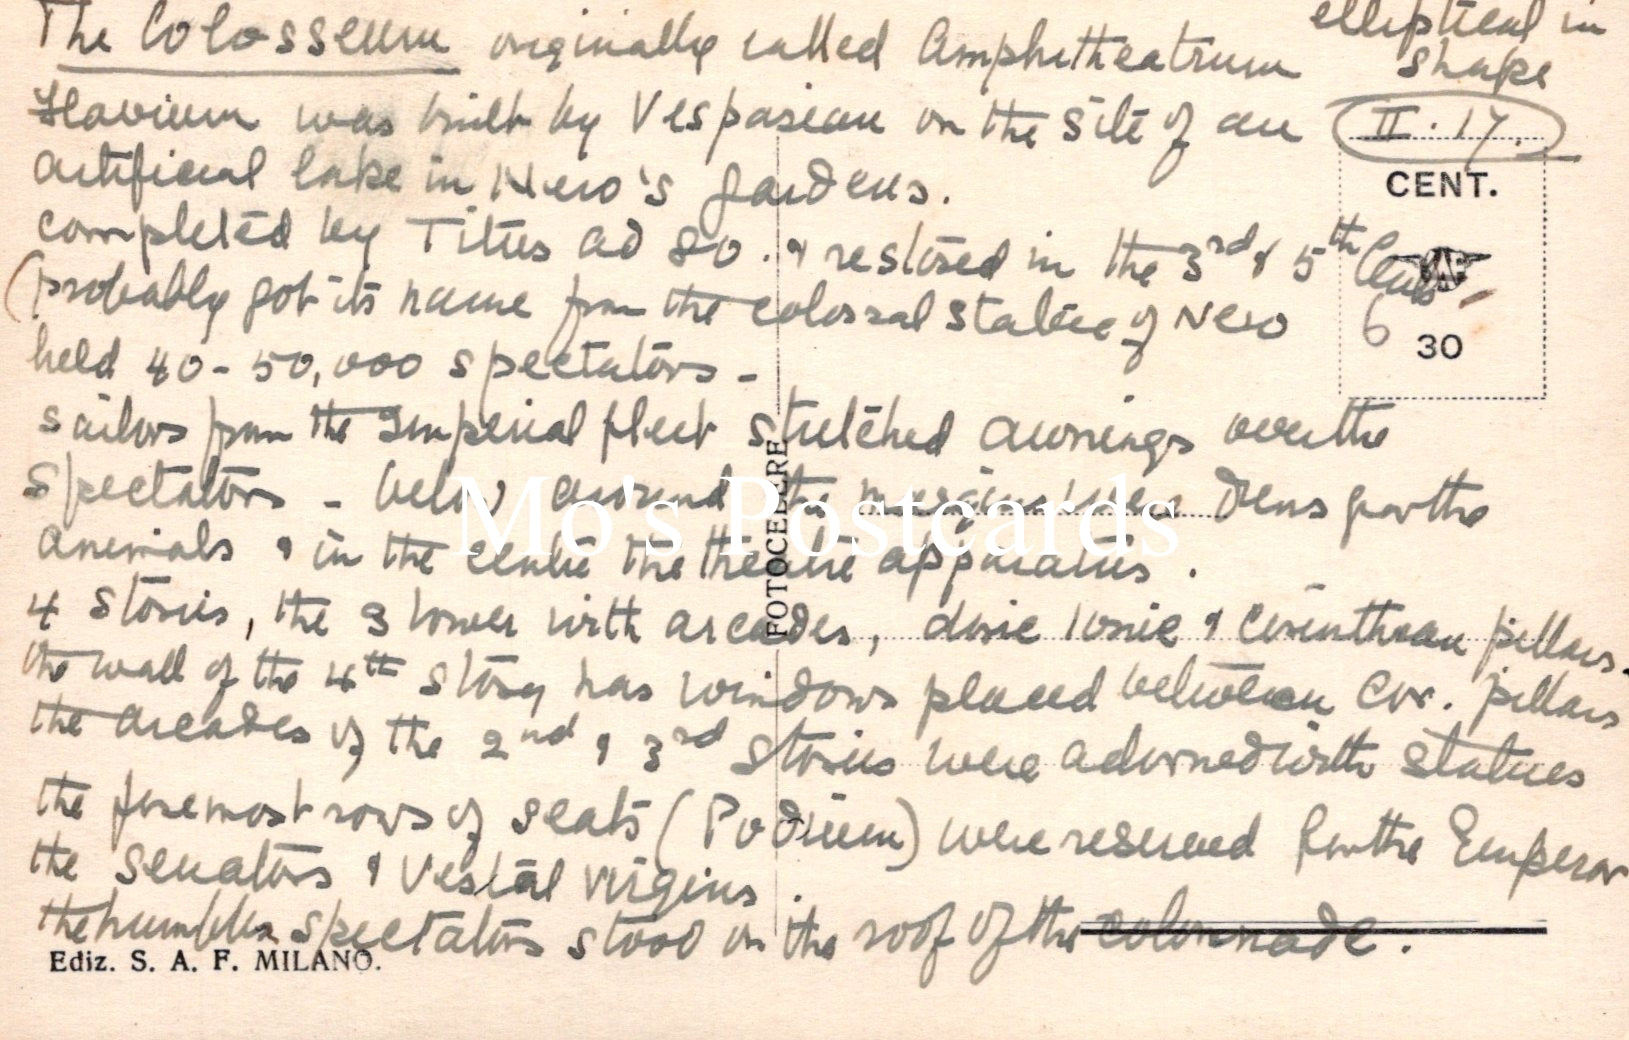 The Colosseum originally called Amphitheatrum
elliptical in
shape
Flavium was built by Vespasian on the site of an
II. 17.
artificial lake in Nero's gardens.
CENT.
completed by Titus AD 80. & restored in the 3rd & 5th Cent.
(probably got its name from the colossal statue of Nero
6
30
held 40-50,000 spectators -
sailors from the Imperial fleet stretched awnings over the
spectators - below around the margin were dens for the
Mo's Postcards
FOTOCELERE
animals & in the centre the theatre apparatus.
4 stories, the 3 lower with arcades, doric ionic & corinthian pillars.
the wall of the 4th story has windows placed between Cor. pillars
the arcades of the 2nd & 3rd stories were adorned with statues
the foremost rows of seats (Podium) were reserved for the Emperor
the senators & Vestal virgins.
the humbler spectators stood on the roof of the colonnade.
Ediz. S. A. F. MILANO.